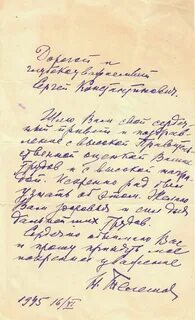 Дорогой и
глубокоуважаемый
Сергей Константинович.
Шлю Вам свой сердеч-
ный привет и поздрав-
ление с высокой Правитель-
ственной оценкой Ваших
трудов и с высокой награ-
дой. Искренно рад был
узнать об этом. Желаю
Вам здоровья и сил для
дальнейших трудов.
Сердечно обнимаю Вас
и прошу принять моё
искреннее уважение
Н. Телешов
1945 16/VI